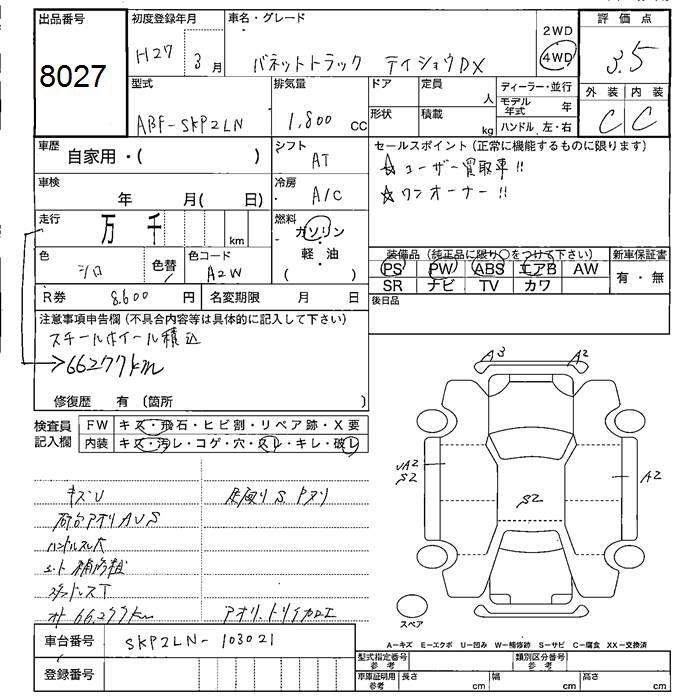 出品番号
8027
初度登録年月
H27 3月
車名・グレード
バネットトラック デイショウDX
2WD
4WD
評価点
3.5
外装 内装
C C
型式
ABF-SKP2LN
排気量
1,800 cc
ドア
定員
人
形状
積載
kg
ディーラー・並行
モデル年式 年
ハンドル 左・右
車歴
自家用・( )
シフト
AT
車検
年 月( 日)
冷房
A/C
セールスポイント(正常に機能するものに限ります)
☆ユーザー買取車!!
☆ワンオーナー!!
走行
万 千 km
燃料
ガソリン
・
軽油
( )
色
シロ
色替
色コード
A2W
装備品(純正品に限り○をつけて下さい)
PS PW ABS エアB AW
SR ナビ TV カワ
新車保証書
有・無
R券 8,600 円
名変期限 月 日
後日品
注意事項申告欄(不具合内容等は具体的に記入して下さい)
スチールホイール積込
→66277km
修復歴 有(箇所 )
検査員記入欄
FW キズ・飛石・ヒビ割・リペア跡・X要
内装 キズ・汚レ・コゲ・穴・スレ・キレ・破レ
キズU
荷台アオリAUS
ハンドルスレ大
下廻りS
66,277km
A3 A2
UA2
S2
S2
A2
スペア
車台番号 SKP2LN-103021
登録番号
A-キズ E-エクボ U-凹み W-補修跡 S-サビ C-腐食 XX-交換済
型式指定番号 参考
類別区分番号 参考
車庫証明用 参考
長さ cm
幅 cm
高さ cm